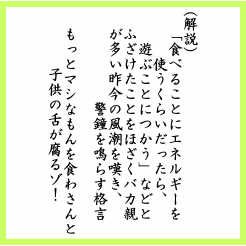 (解説)
「食べることにエネルギーを
使うくらいだったら、
遊ぶことにつかう」などと
ふざけたことをほざくバカ親
が多い昨今の風潮を嘆き、
警鐘を鳴らす格言
もっとマシなもんを食わさんと
子供の舌が腐るゾ!